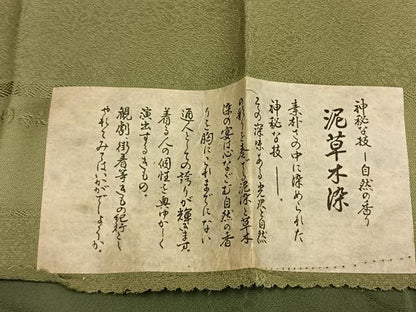 神秘な技ー自然の香り
泥草木染
素朴さの中に染められた
神秘な技ー。
その深味ある光沢と自然
の彩りを奏でる泥染と草木
染の宴は心なごむ自然の香
りと胸にこれまでにない
通人としての誇りが輝きます。
着る人の個性を奥ゆかしく
演出するきもの。
観劇、街着等きもの紀行とし
やれてみてはいかがでしょうか。